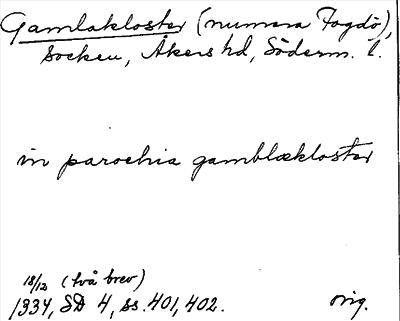 Gamlakloster (numera Fogdö),
socken, Åkers hd, Söderm. l.
in parochia gamblækloster
18/12 (två brev)
1334, SD 4, ss. 401, 402. orig.